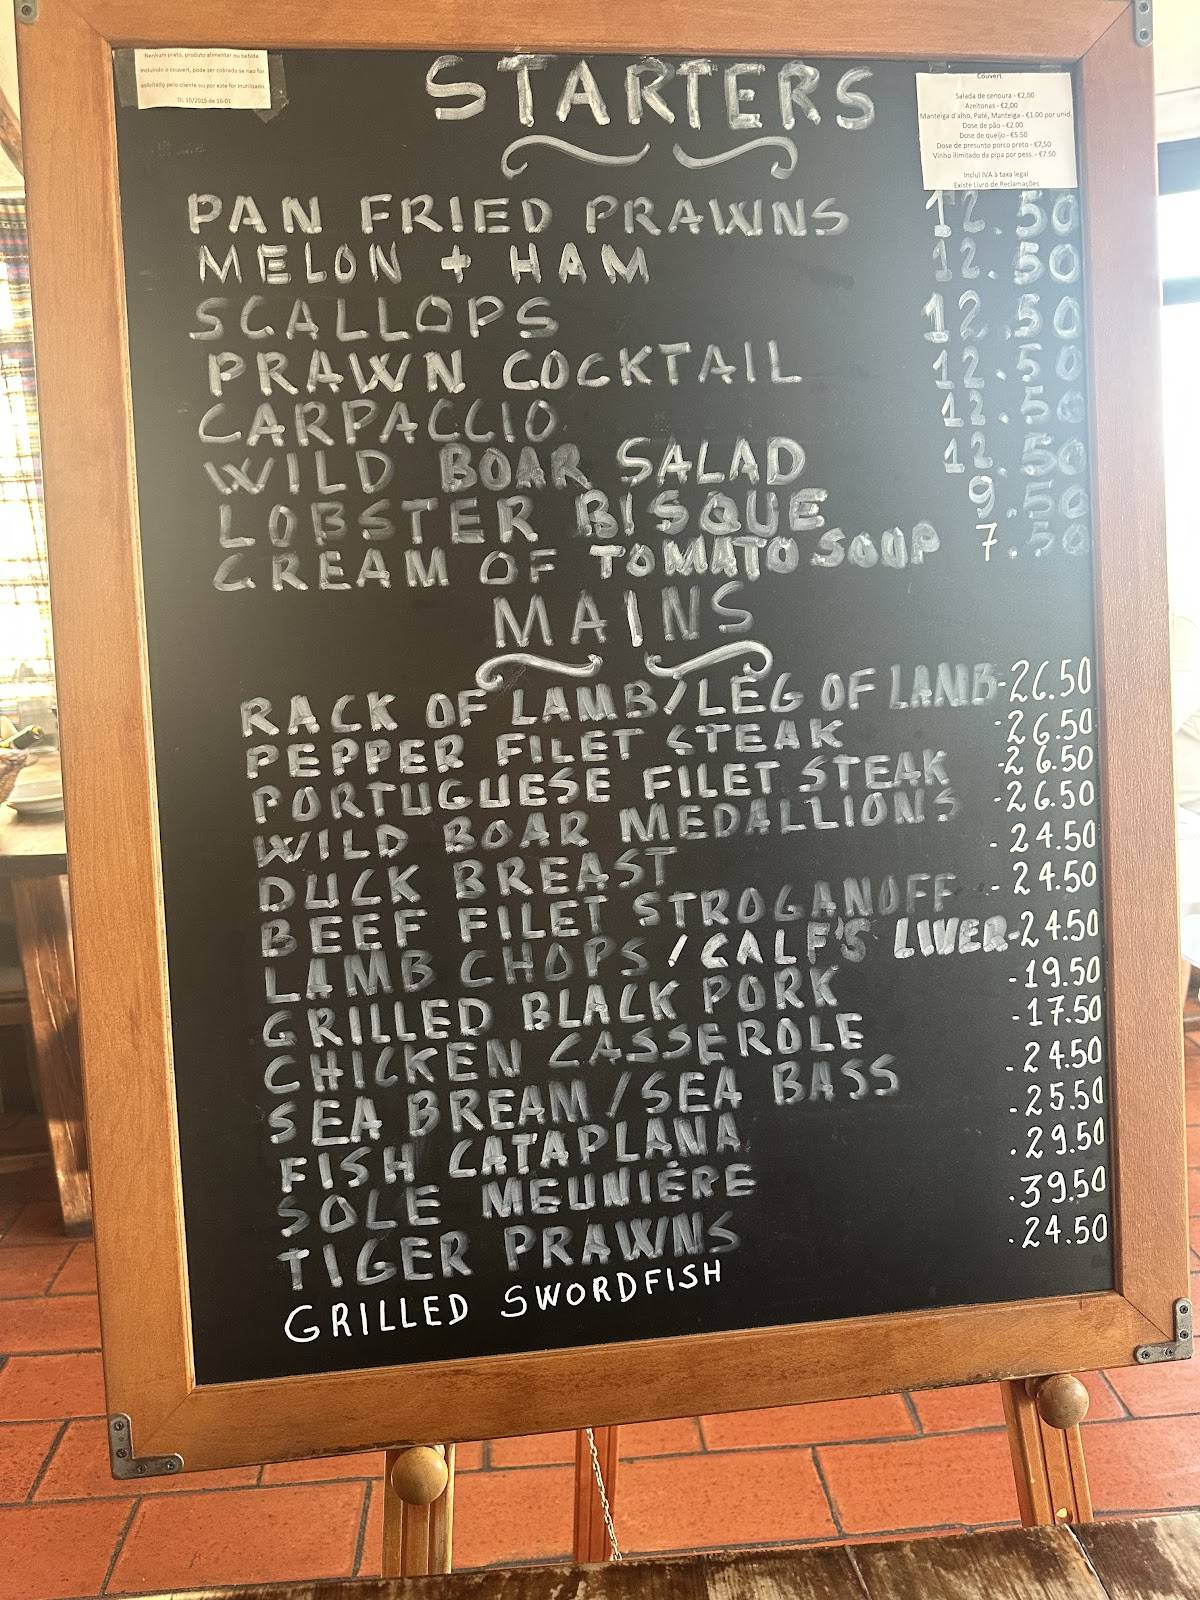 Nenhum prato, produto alimentar ou bebida
incluindo o couvert, pode ser cobrado se não for
solicitado pelo cliente ou por este for inutilizado.
DL 10/2015 de 16-01
STARTERS
Couvert
Salada de cenoura - €2,00
Azeitonas - €2,00
Manteiga d'alho, Paté, Manteiga - €1.00 por unid.
Dose de pão - €2.00
Dose de queijo - €5.50
Dose de presunto porco preto - €7,50
Vinho ilimitado da pipa por pess. - €7.50
Inclui IVA à taxa legal
Existe Livro de Reclamações
PAN FRIED PRAWNS 12.50
MELON + HAM 12.50
SCALLOPS 12.50
PRAWN COCKTAIL 12.50
CARPACCIO 12.50
WILD BOAR SALAD 12.50
LOBSTER BISQUE 9.50
CREAM OF TOMATO SOUP 7.50
MAINS
RACK OF LAMB/LEG OF LAMB -26.50
PEPPER FILET STEAK -26.50
PORTUGUESE FILET STEAK -26.50
WILD BOAR MEDALLIONS -26.50
DUCK BREAST -24.50
BEEF FILET STROGANOFF -24.50
LAMB CHOPS/CALF'S LIVER -24.50
GRILLED BLACK PORK -19.50
CHICKEN CASSEROLE -17.50
SEA BREAM/SEA BASS -24.50
FISH CATAPLANA -25.50
SOLE MEUNIÉRE .29.50
TIGER PRAWNS .39.50
GRILLED SWORDFISH .24.50